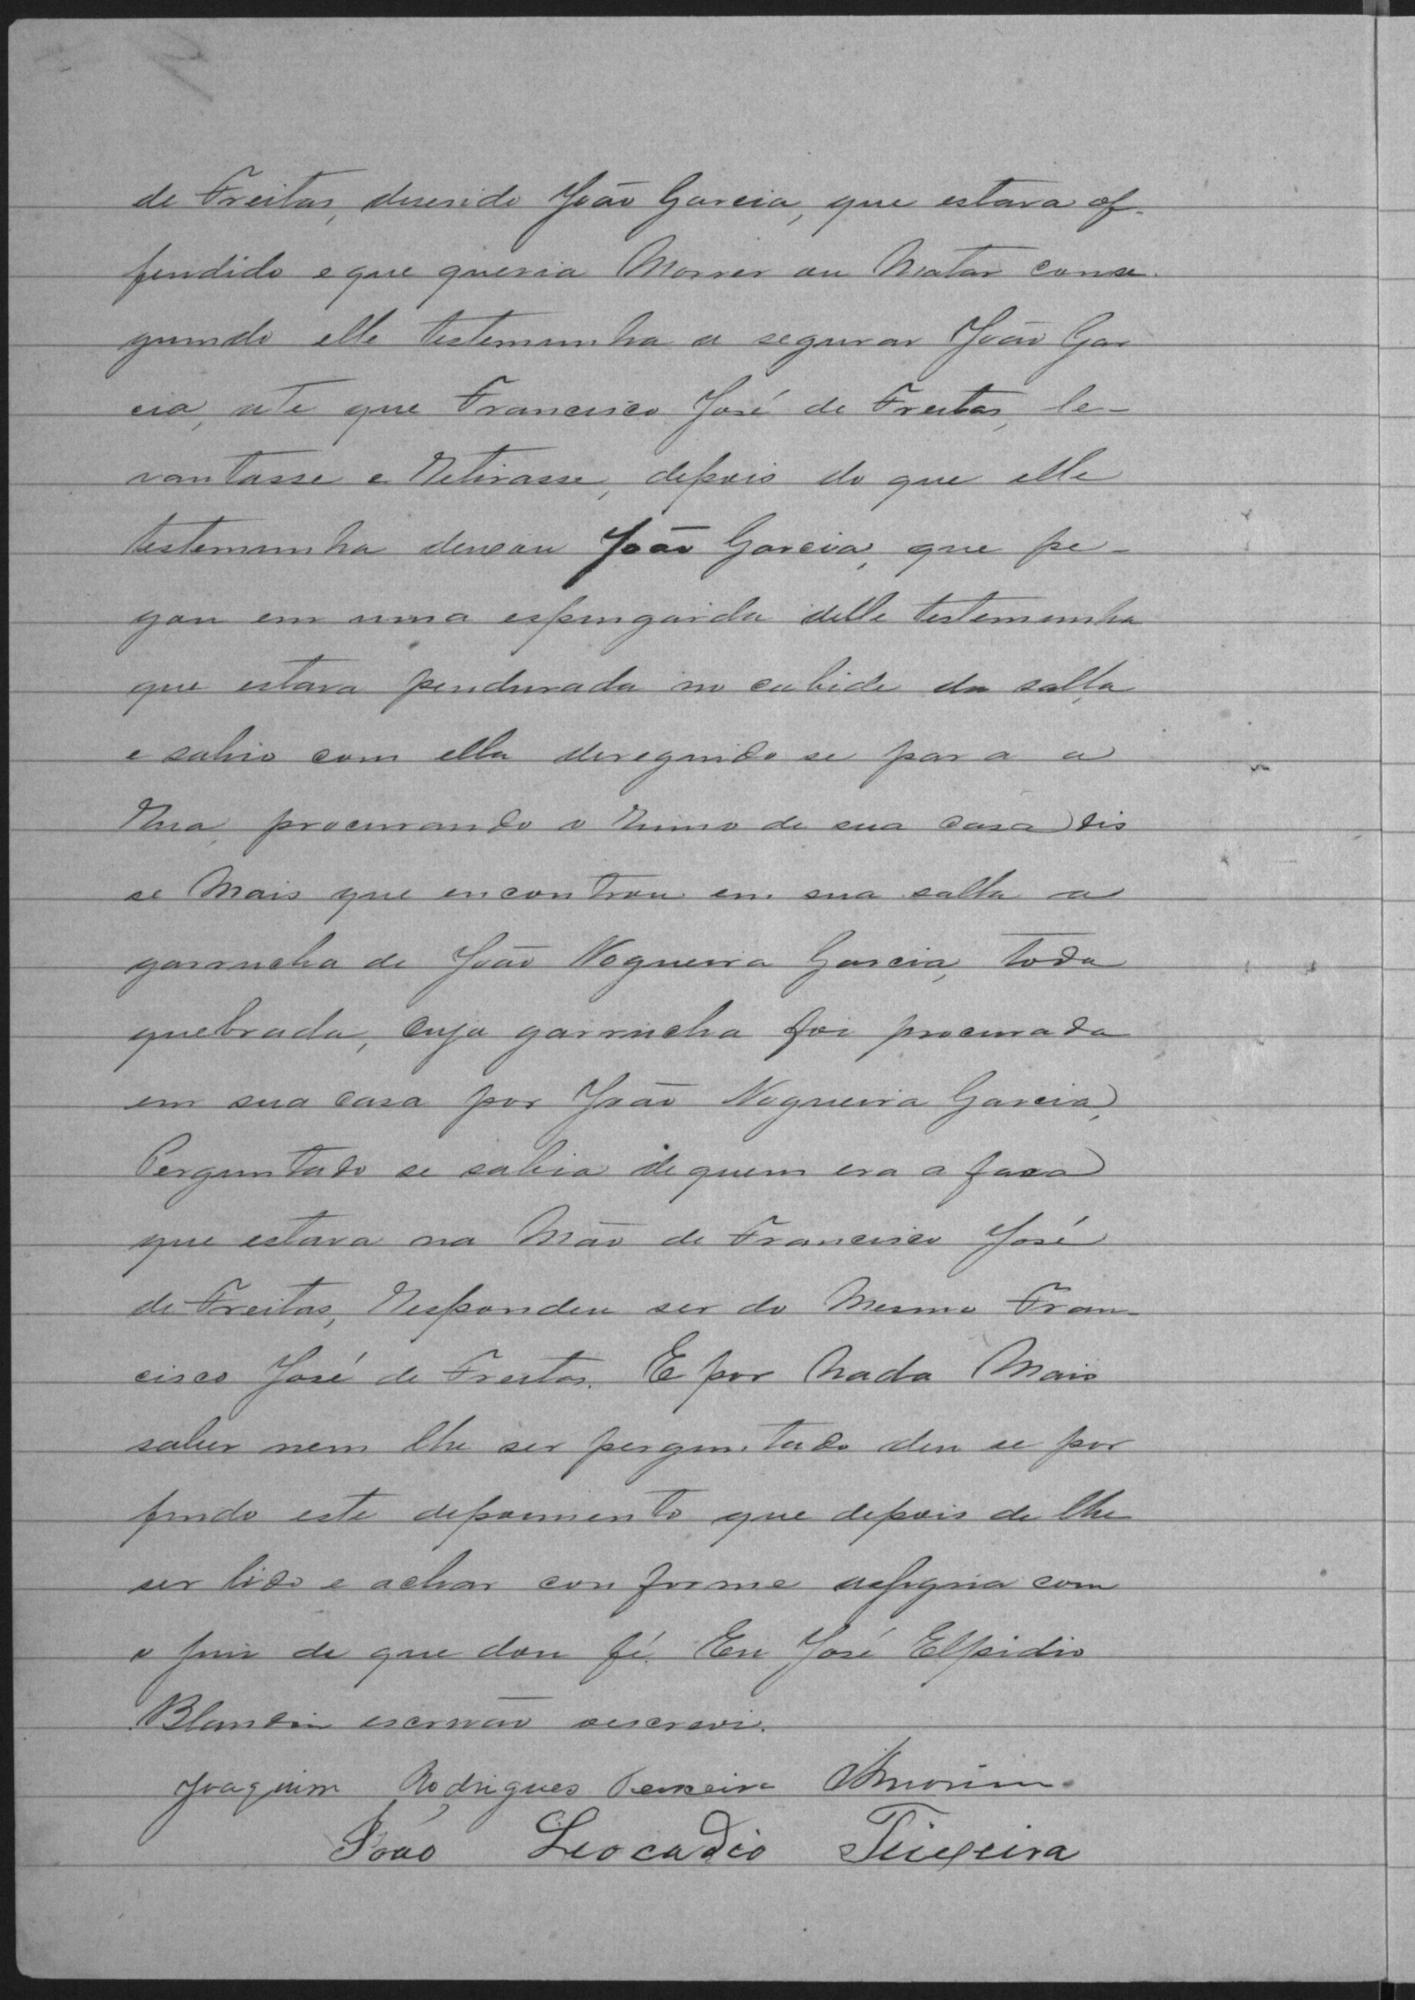 de Freitas, disendo João Garcia, que estava of-
fendido e que queria Morrer ou Matar conse
guindo elle testemunha a segurar João Gar
cia, até que Francisco José de Freitas, le-
vantasse e Retirasse, depois do que elle
testemunha deixou João Garcia, que pe-
gou em uma espingarda delle testemunha
que estava pendurada no cabide da salla
e sahio com ella dereguido se para a
Rua, procurando o rumo de sua casa dis
se Mais que encontrou em sua salla a
garrucha de João Nogueira Garcia, toda
quebrada, cuja garrucha foi procurada
em sua casa por João Nogueira Garcia,
Perguntado se sabia de quem era a faca
que estava na Mão de Francisco José
de Freitas, Respondeu ser do Mesmo Fran-
cisco José de Freitas. E por Nada Mais
saber nem lhe ser perguntado deu se por
findo este depoimento que depois de lhe
ser lido e achar conforme assigna com
o juiz de que dou fé. Eu José Elpidio
Blandin escrivão oescrevi.
Joaquim Rodrigues Pereira Amorim.
João Leocadio Teixeira